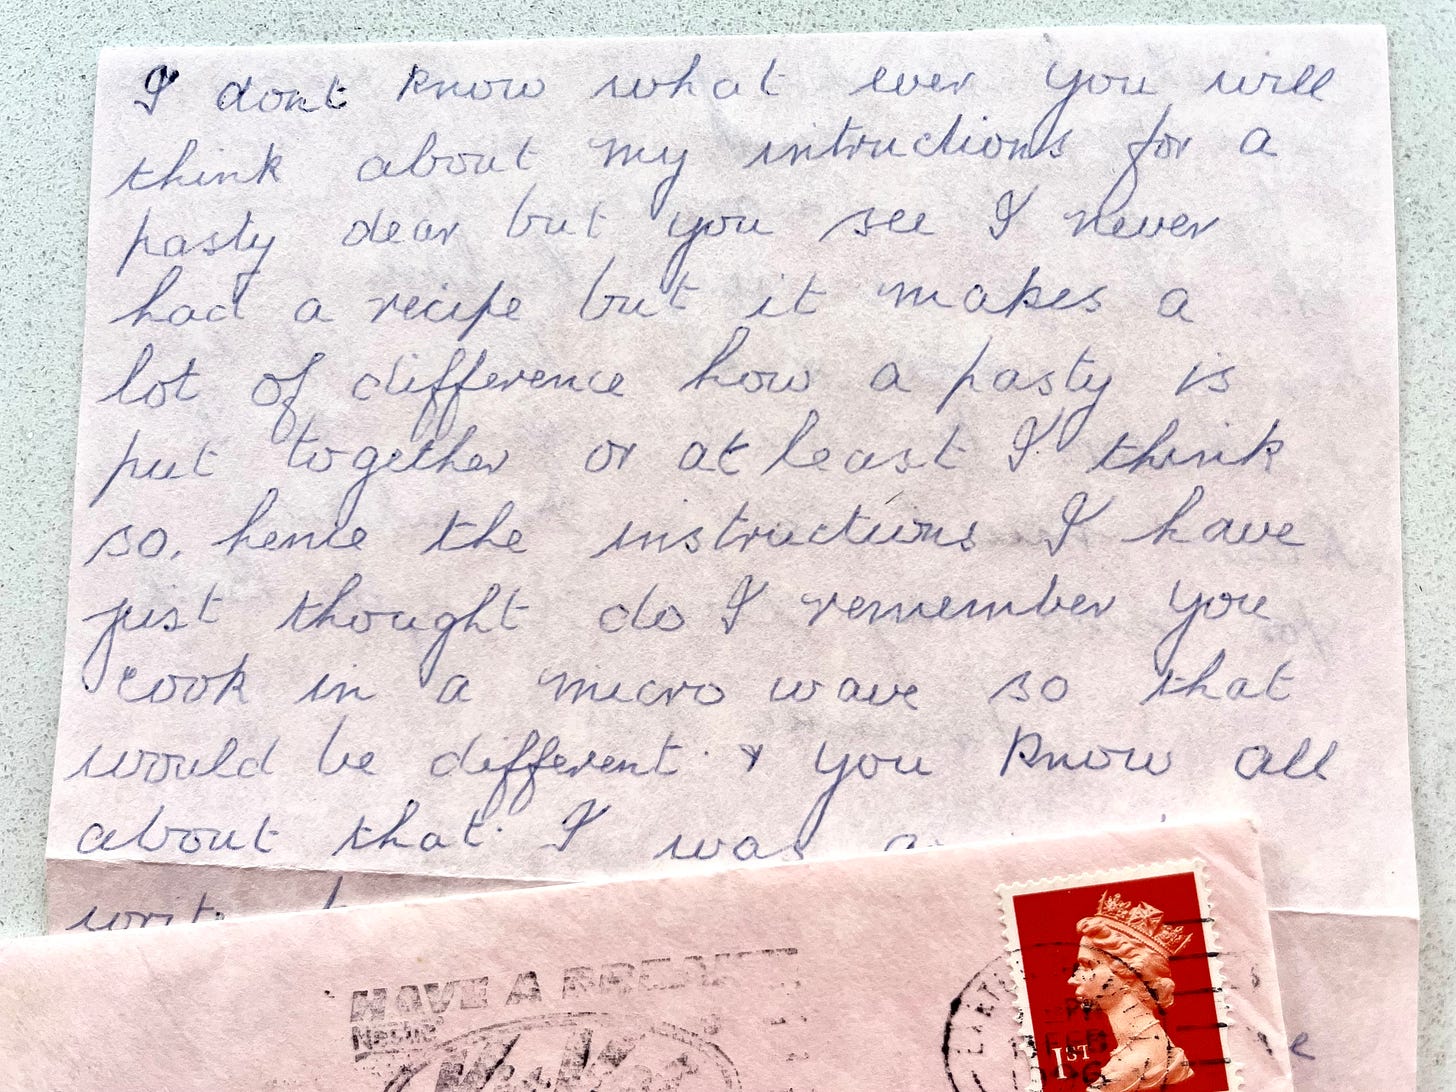 I dont know what ever you will
think about my intructions for a
pasty dear but you see I never
had a recipe but it makes a
lot of difference how a pasty is
put together or at least I think
so, hence the instructions I have
just thought do I remember you
cook in a micro wave so that
would be different. & you know all
about that. I was
HAVE A BREAK
Nestlé
1ST
FEB